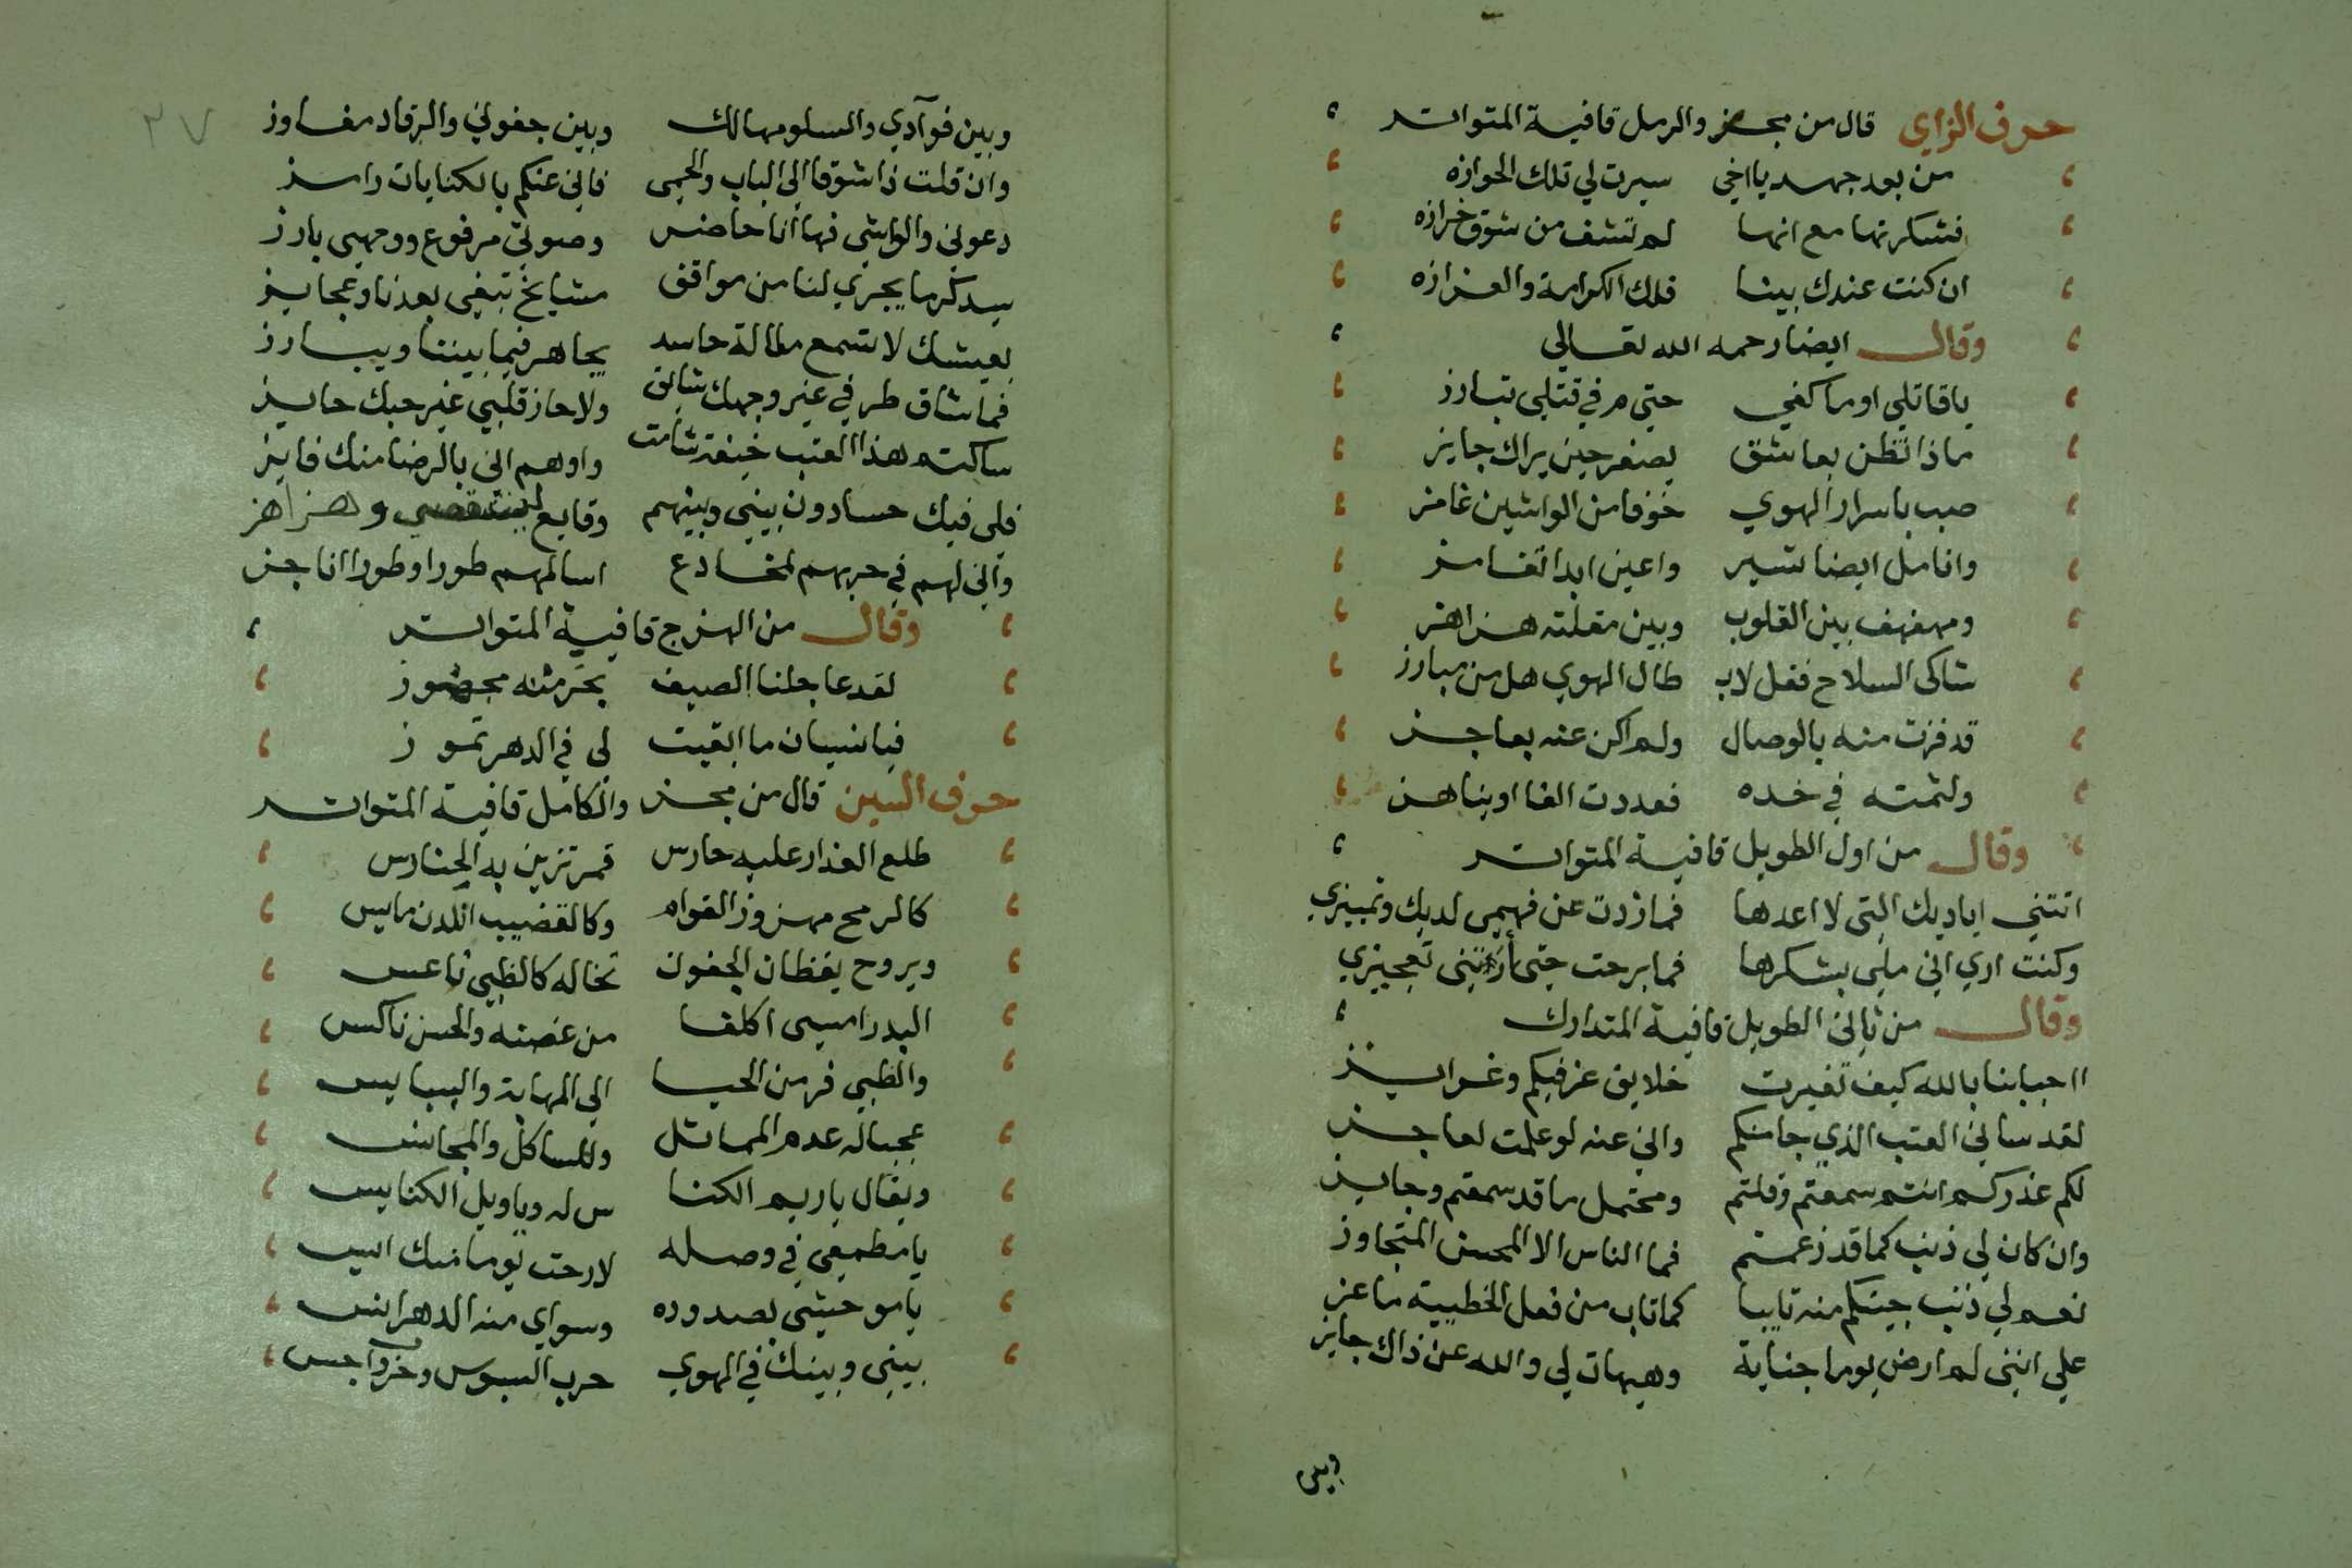 حرف الزاي قال من مجزو الرمل قافية المتواتر
من بعد جهد يا اخي سيرت لي تلك الحوازه
فشكرتها مع انها لم تشف من شوق خزازه
ان كنت عندك بينا فلك الكرامة والعزازه
وقال ايضا رحمه الله تعالي
يا قاتلي او ما كفي حتي م في قتلي تبارز
ماذا تظن بعاشق يصفر حين يراك جايز
صب باسرار الهوي خوفا من الواشين غامز
وانامل ايضا تشير واعين ابدا تغامز
ومهفهف بين القلوب وبين مقلته هزاهز
شاكي السلاح فقل لاب طال الهوي هل من مبارز
قد فزت منه بالوصال ولم اكن عنه بعاجز
ولثمته في خده فعددت الفا او يناهز
وقال من اول الطويل قافية المتواتر
اتتني اياديك التي لا اعدها فما زدت عن فهمي لديك وتمييزي
وكنت اري اني ملي بشكرها فما برحت حتي أرتني تعجيزي
وقال من ثاني الطويل قافية المتدارك
ااحبابنا بالله كيف تغيرت خلايق غر فيكم وغرايز
لقد ساني العتب الذي جا منكم واني عنه لو علمت لعاجز
لكم عذركم انتم سمعتم وقلتم ومحتمل ما قد سمعتم وجايز
وان كان لي ذنب كما قد زعمتم فما الناس الا المحسن المتجاوز
نعم لي ذنب جيتكم منه تايبا كما تاب من فعل الخطيية ماعز
علي انني لم ارض يوما جناية وهيهات لي والله عن ذاك حاجز
وبين
٣٧
وبين فوآدي والسلو مهالك وبين جفوني والرقاد مفاوز
وان قلت ذا شوقا الي الباب والحمي فاني عنكم بالكنايات رامز
دعوني والواشي فها انا حاضر وصوتي مرفوع ووجهي بارز
سيذكر ما يجري لنا من مواقف مشايخ تبقي بعدنا وعجايز
بعيشك لا تسمع مقالة حاسد يجاهر فيما بيننا ويبارز
فما شاق طرفي غير وجهك شايق ولا حاز قلبي غير حبك حايز
ساكتم هذا العتب خيفة شامت واوهم اني بالرضا منك فايز
فلي فيك حساد وبيني وبينهم وقايع ليست تنقضي وهزاهز
واني لهم في حربهم لمخادع اسالمهم طورا وطورا اناجز
وقال من الهزج قافية المتواتر
لقد عاجلنا الصيف بحر مثله محجوز
فيا نيسان ما ابقيت لي في الدهر تموز
حرف السين قال من مجزو الكامل قافية المتواتر
طلع العذار عليه حارس قمر تزين به الحنادس
كالرمح مهزوز القوام وكالقضيب اللدن مايس
ويروح يقظان الجفون تخاله كالظبي ناعس
البدر امسي اكلفا من غصنه والحسن ناكس
والظبي فر من الحيا الي المهامة والبسابس
عجبا له عدم المماثل والمشاكل والمجانس
ويقال يا ريم الكنا س له ويا ويل الكنايس
يا مطمعي في وصله لا رحت يوما منك ايس
يا موحشي بصدوده وسواي منه الدهر انس
بيني وبينك في الهوي حرب البسوس وحرب داحس